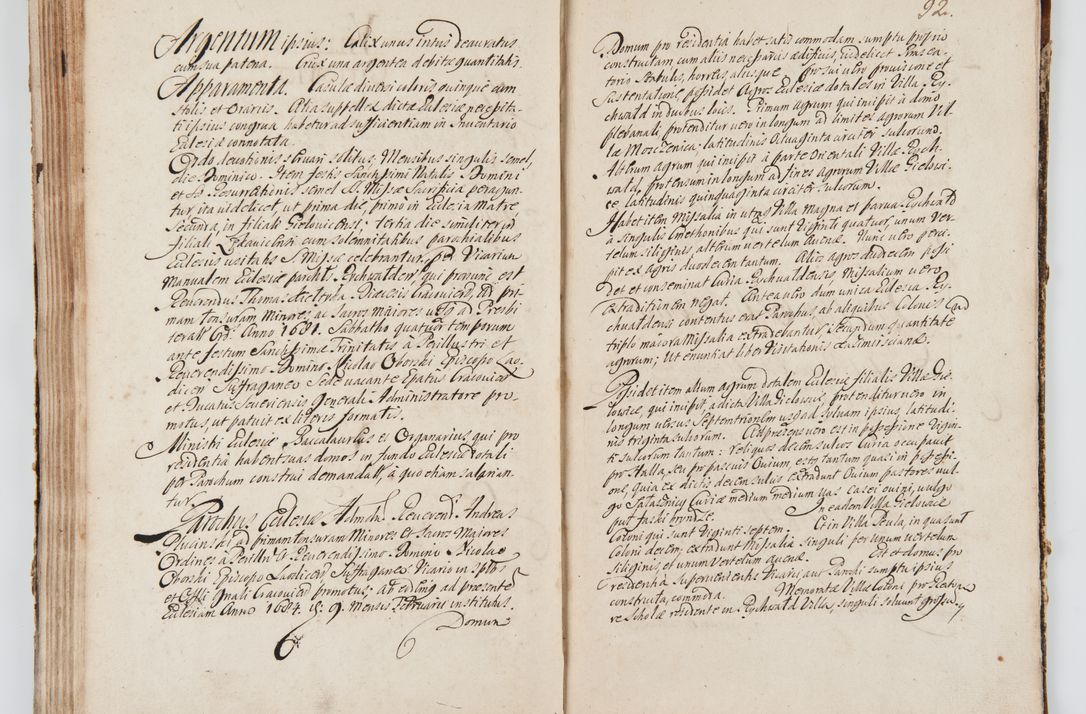 Argentum ipsius: Calix unus intus deauratus
cum sua patena. Crux una argentea debitæ quantitatis.
Apparamenta. Casulæ diversi coloris quinque cum
stolis et Orariis. Alia supellex dictæ Ecclesiæ necessita-
ti ipsius congrua habetur ad sufficientiam in Inventario
Ecclesiæ connotata.
Ordo devotionis servari solitus, Mensibus singulis semel,
die Dominico. Item festis Sanctissimi Natalis Domini
et Resurrectionis semel S. Missæ Sacrificia peragun-
tur, ita videlicet, ut prima die, primo in Ecclesia Matre,
Secunda, in filiali Gielovicensi, tertia die similiter in
filiali cum solemnitatibus parochialibus
Ecclesiis usitatis S. Missæ celebrantur, per Vicarium
manualem Ecclesiæ parchlis Pychwalden, qui pronunc est
Reverendus Thomas Diæcesis Cracovien, ad pri-
mam tonsuram Minores, ac Sacros maiores vero ad Presbi-
terat Ord. Anno 1681. Sabbatho quatuor temporum
ante festum Sanctissimæ Trinitatis à Perillustri et
Reverendissimo Domino Nicolao Oborski Episcopo Lao-
dicen Suffraganeo Sede vacante Epatus Cracovien
et Ducatus Severiensis Generali Administratore pro-
motus, ut patuit ex literis formatis.
Ministri Ecclesiæ Baccalaureus et Organarius qui pro
residentia habent suas domos in fundo Ecclesiæ dotali
per Parochum construi demandatas, à quo etiam salarian-
tur.
Parochus Ecclesiæ Admodum Reverend. Andreas
ad primam tonsuram Minores et Sacros Maiores
Ordines à Perillri et Reverendissimo Domino Nicolao
Oborski Episcopo Laodicen Suffraganeo Vicario in Splibus
et Offli Gnali Cracovien promotus; ab eodemque ad præsentem
Ecclesiam Anno 1684. die 9. Mensis Februarii institutus.
Domum
92.
Domum pro residentia habet satis commodam sumptu proprio
constructam cum aliis necessariis ædificiis, videlicet Præsea-
torio Stabulis, horreis, aliisque. Pro sui vero provisione et
sustentatione, possidet Agros Ecclesiæ dotales in Villa Py-
chwald in duobus locis. Primum agrum qui incipit à domo
plebanali protenditur vero in longum ad limites agrorum Vil-
læ Moszczenica; latitudinis octuaginta circiter sulcorum.
Alterum agrum qui incipit à parte Orientali Villæ Pych-
wald, protensum in longum ad fines agrorum Villæ Gielowi-
ce latitudinis quinquaginta circiter sulcorum.
Habet item Missalia in utraque Villa magna et parva Pychwald
à singulis Cmethonibus qui sunt viginti quatuor, unum ver-
telum siliginis, alterum vertelum avenæ. Nunc vero perci-
pit ex agris duodecem tantum. Alios agros duodecem possi-
det et conseminat Curia Pychwaldensis, Missalium vero
extraditionem negat. Antea vero dum unica Ecclesia Py-
chwaldensis contentus erat Parochus, ab aliquibus Colonis in
triplo maiora Missalia extradebantur secundum quantitate
agrorum; Ut enuntiat liber Visitationis
Possidet item alium agrum dotalem Ecclesiæ filialis Villæ Gie-
lowice, qui incipit à dicta Villa Gielowice, protenditur vero in
longum versus Septentrionem usque ad sylvam ipsius, latitudi-
nis triginta sulcorum. Ad præsens vero est in possessione vigin-
ti sulcorum tantum: reliquos decem sulcos Curia occupavit
pro Stalla seu pro pascuis Ovium, esto tantum quasi in possessi-
one, quia ex dictis decem sulcis extradunt Ovium pastores vul-
go Sałasznicy Curiæ medium medium vas Casei ovini, vulgo
puł faski bryndze. In eadem Villa Gielowice
Coloni qui sunt viginti septem. Et in Villa Peula, in qua sunt
Coloni decem, extradunt Missalia singuli per unum vertelum
Siliginis, et unum vertelum avenæ. Est et domus pro
residentia supervenientis Vicarii aut Parochi sumptu ipsius
constructa, commoda. Memoratæ Villæ Coloni pro Recto-
re Scholæ residente in Pychwald Villa, singuli solvunt grossos